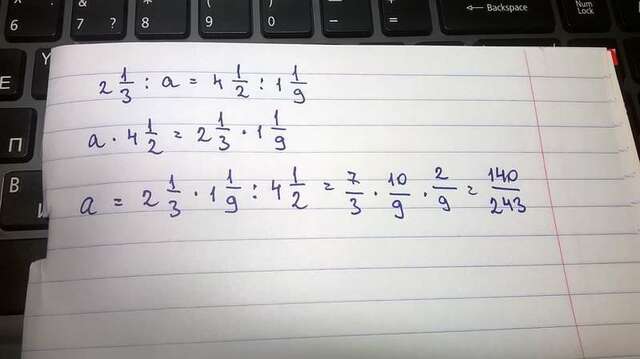 6
7
?
8
9
(
0
)
-
=
+
← Backspace
Num
Lock
E
П
B
2 1/3 : a = 4 1/2 : 1 1/9
a · 4 1/2 = 2 1/3 · 1 1/9
a = 2 1/3 · 1 1/9 : 4 1/2 = 7/3 · 10/9 · 2/9 = 140/243